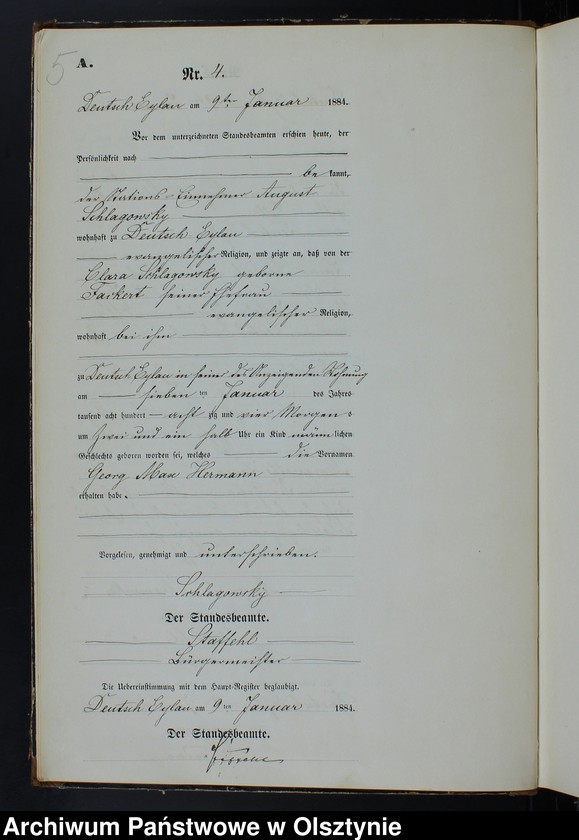 5
A.
Nr. 4.
Deutsch Eylau am 9ten Januar 1884.
Vor dem unterzeichneten Standesbeamten erschien heute, der
Persönlichkeit nach
bekannt,
der Stations-Einnehmer August
Schlagowsky
wohnhaft zu Deutsch Eylau
evangelischer Religion, und zeigte an, daß von der
Clara Schlagowsky geborne
Fackert seiner Ehefrau
evangelischer Religion,
wohnhaft bei ihm
zu Deutsch Eylau in seiner des Anzeigenden Wohnung
am sieben ten Januar des Jahres
tausend acht hundert acht zig und vier Morgens
um zwei und ein halb Uhr ein Kind männlichen
Geschlechts geboren worden sei, welches die Vornamen
Georg Max Hermann
erhalten habe.
Vorgelesen, genehmigt und unterschrieben.
Schlagowsky
Der Standesbeamte.
Staffehl
Bürgermeister
Die Uebereinstimmung mit dem Haupt-Register beglaubigt.
Deutsch Eylau am 9ten Januar 1884.
Der Standesbeamte.
Archiwum Państwowe w Olsztynie